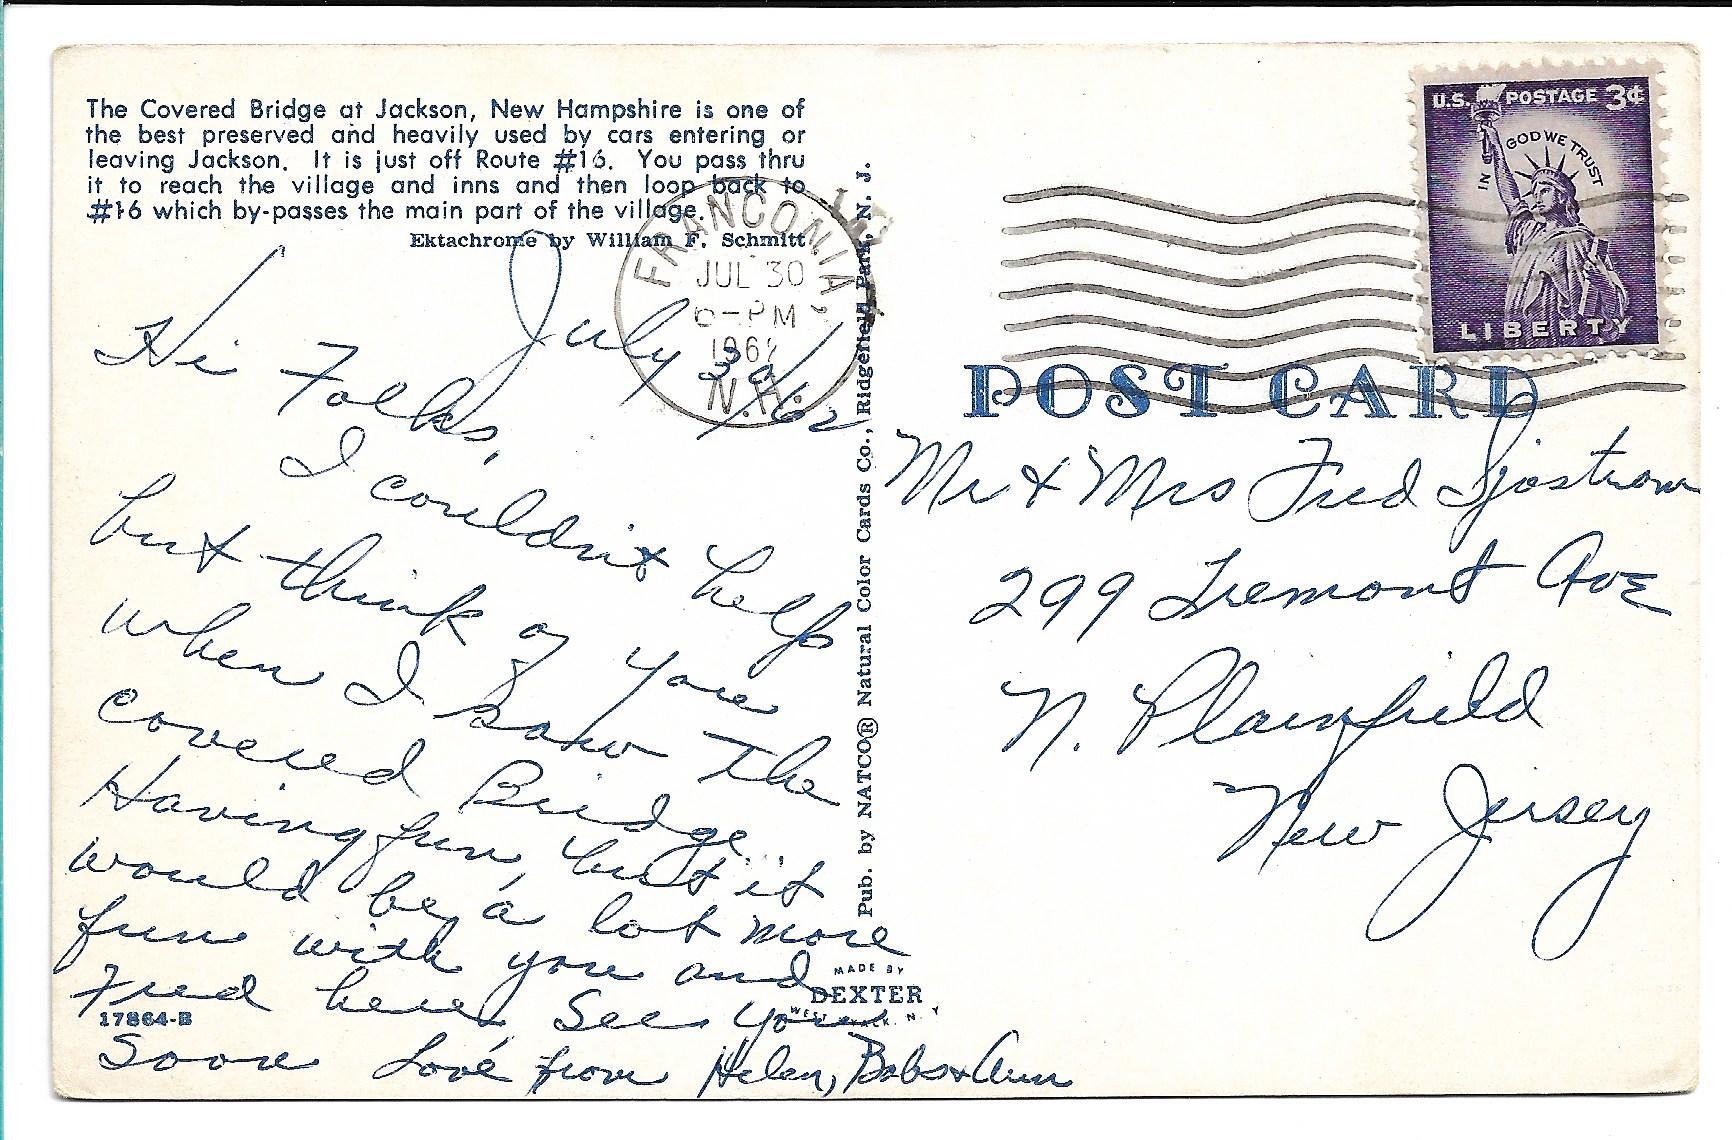 The Covered Bridge at Jackson, New Hampshire is one of
the best preserved and heavily used by cars entering or
leaving Jackson. It is just off Route #16. You pass thru
it to reach the village and inns and then loop back to
#16 which by-passes the main part of the village.
Ektachrome by William F. Schmitt
July 30/62
Hi Folks,
I couldn't help
but think of you
when I saw the
covered Bridge.
Having fun, but it
would be a lot more
fun with you and
Fred here. See you
soon Love from Helen, Bobs & Ann
17864-B
FRANCONIA,
JUL 30
6-PM
1962
N.H.
Pub. by NATCO® Natural Color Cards Co., Ridgefield Park, N. J.
MADE BY
DEXTER
WEST NYACK, N. Y.
U.S. POSTAGE 3¢
IN GOD WE TRUST
LIBERTY
POST CARD
Mr & Mrs Fred Sjostrom
299 Tremont Ave
N. Plainfield
New Jersey